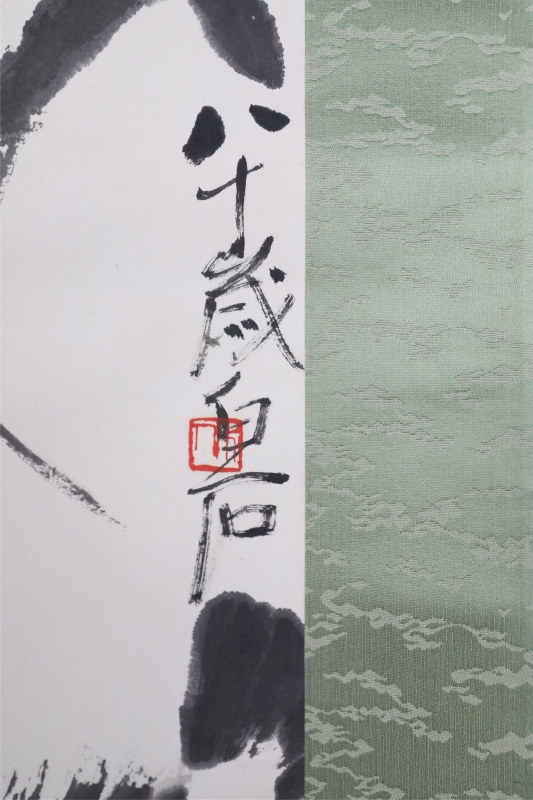 八十歳白石